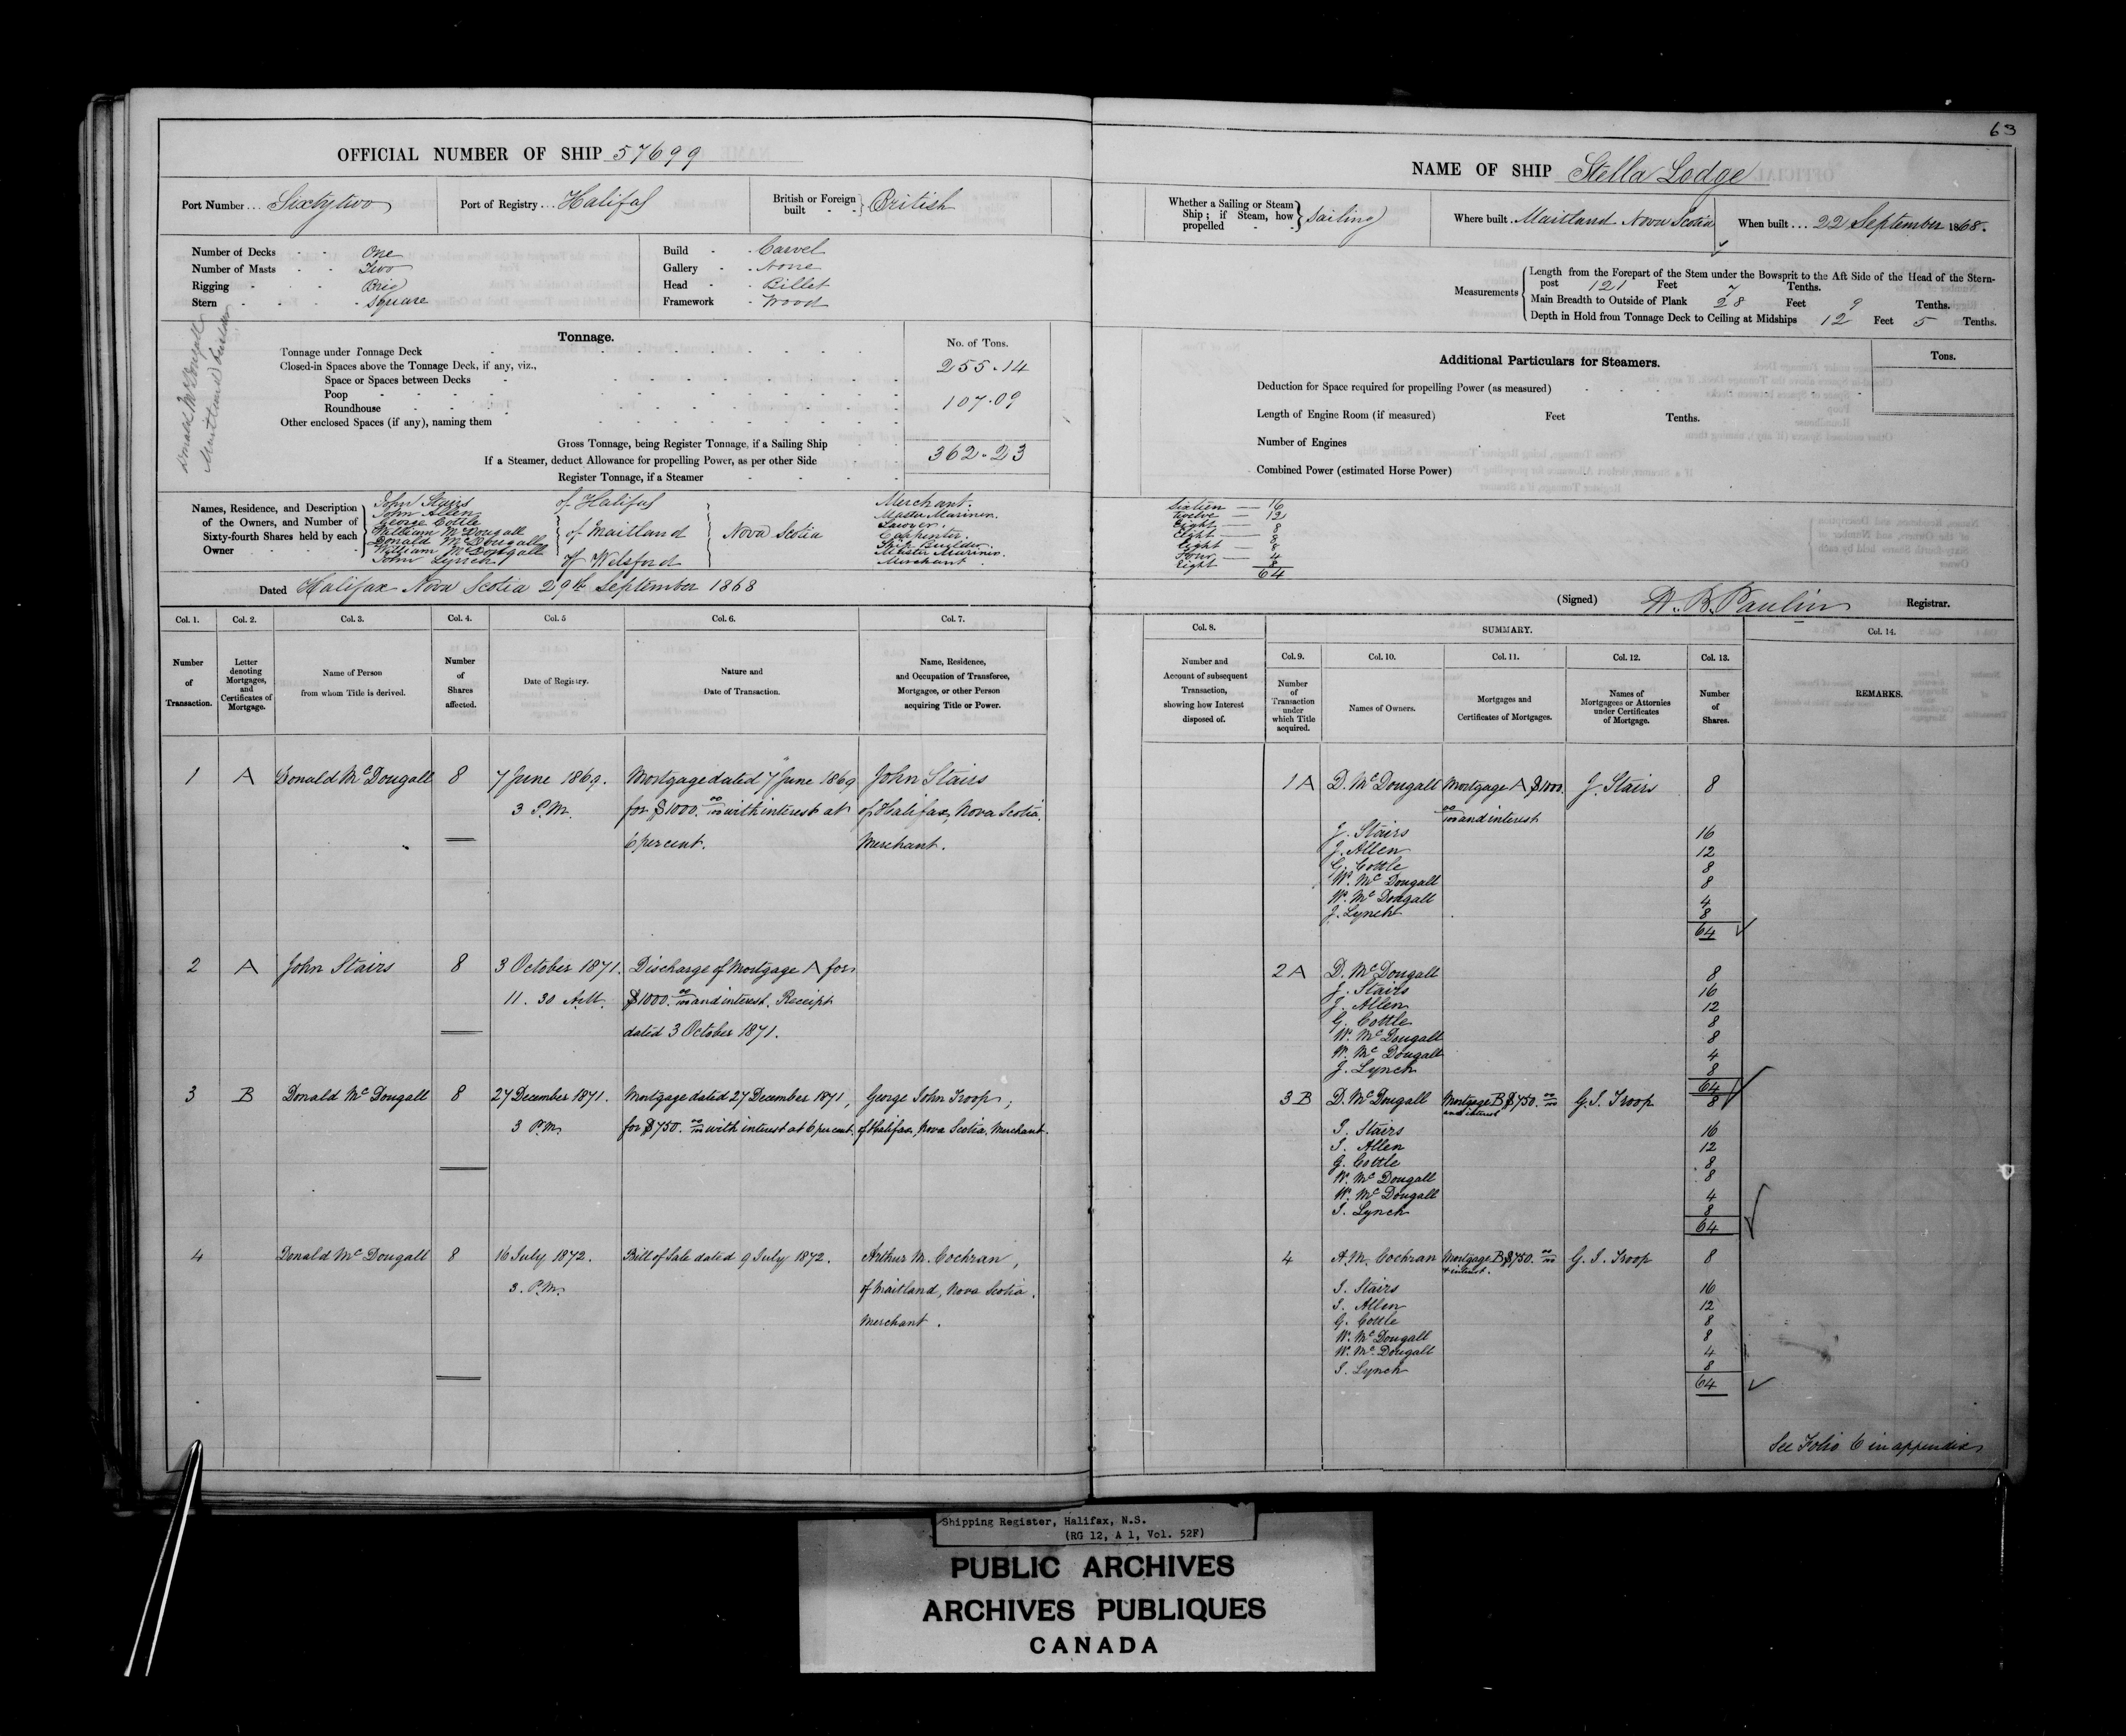 63
OFFICIAL NUMBER OF SHIP 57699
NAME OF SHIP Stella Lodge
Port Number ... Sixtytwo
Port of Registry ... Halifax
British or Foreign built } British
Whether a Sailing or Steam Ship; if Steam, how propelled } Sailing
Where built Maitland Nova Scotia
When built ... 22 September 1868.
Number of Decks One
Number of Masts Two
Rigging Brig
Stern Square
Build Carvel
Gallery None
Head Billet
Framework Wood
Measurements
Length from the Forepart of the Stem under the Bowsprit to the Aft Side of the Head of the Stern-
post 121 Feet 7 Tenths.
Main Breadth to Outside of Plank 28 Feet 9 Tenths.
Depth in Hold from Tonnage Deck to Ceiling at Midships 12 Feet 5 Tenths.
Donald McDougall
Maitland builder
Tonnage.
No. of Tons.
Tonnage under Tonnage Deck 255.14
Closed-in Spaces above the Tonnage Deck, if any, viz.,
Space or Spaces between Decks
Poop 107.09
Roundhouse
Other enclosed Spaces (if any), naming them
Gross Tonnage, being Register Tonnage, if a Sailing Ship 362.23
If a Steamer, deduct Allowance for propelling Power, as per other Side
Register Tonnage, if a Steamer
Additional Particulars for Steamers.
Tons.
Deduction for Space required for propelling Power (as measured)
Length of Engine Room (if measured) Feet Tenths.
Number of Engines
Combined Power (estimated Horse Power)
Names, Residence, and Description of the Owners, and Number of Sixty-fourth Shares held by each Owner
John Stairs of Halifax Merchant. Sixteen — 16
John Allen Master Mariner. Twelve — 12
George Cottle Sawyer. Eight — 8
William McDougall of Maitland Nova Scotia Carpenter. Eight — 8
Donald McDougall Ship Builder. Eight — 8
William McDougall Master Mariner. Four — 4
John Lynch of Welsford Merchant. Eight 8
64
Dated Halifax Nova Scotia 29th September 1868
(Signed) W. B. Paulin Registrar.
Col. 1. Col. 2. Col. 3. Col. 4. Col. 5 Col. 6. Col. 7.
Number of Transaction.
Letter denoting Mortgages, and Certificates of Mortgage.
Name of Person from whom Title is derived.
Number of Shares affected.
Date of Registry.
Nature and Date of Transaction.
Name, Residence, and Occupation of Transferee, Mortgagee, or other Person acquiring Title or Power.
Col. 8. SUMMARY. Col. 14.
Col. 9. Col. 10. Col. 11. Col. 12. Col. 13.
Number and Account of subsequent Transaction, showing how Interest disposed of.
Number of Transaction under which Title acquired.
Names of Owners.
Mortgages and Certificates of Mortgages.
Names of Mortgagees or Attornies under Certificates of Mortgage.
Number of Shares.
REMARKS.
1 A Donald McDougall 8 7 June 1869. Mortgage dated 7 June 1869 John Stairs
3 P.M. for $1000. 00/100 with interest at of Halifax, Nova Scotia.
6 per cent. Merchant.
1 A D. McDougall Mortgage A $1000. J. Stairs 8
00/100 and interest
J. Stairs 16
J. Allen 12
G. Cottle 8
W. McDougall 8
W. McDougall 4
J. Lynch 8
64
2 A John Stairs 8 3 October 1871. Discharge of Mortgage A for
11.30 A.M. $1000. 00/100 and interest. Receipt
dated 3 October 1871.
2 A D. McDougall 8
J. Stairs 16
J. Allen 12
G. Cottle 8
W. McDougall 8
W. McDougall 4
J. Lynch 8
64
3 B Donald McDougall 8 27 December 1871. Mortgage dated 27 December 1871, George John Troop,
3 P.M. for $750. 00/100 with interest at 6 per cent. of Halifax, Nova Scotia, Merchant.
3 B D. McDougall Mortgage B $750. 00/100 G.J. Troop 8
and interest
J. Stairs 16
J. Allen 12
G. Cottle 8
W. McDougall 8
W. McDougall 4
J. Lynch 8
64
4 Donald McDougall 8 16 July 1872. Bill of Sale dated 9 July 1872. Arthur M. Cochran,
3. P.M. of Maitland, Nova Scotia,
Merchant.
4 A.M. Cochran Mortgage B $750. 00/100 G. J. Troop 8
& interest.
J. Stairs 16
J. Allen 12
G. Cottle 8
W. McDougall 8
W. McDougall 4
J. Lynch 8
64
See Folio 6 in appendix
Shipping Register, Halifax, N.S.
(RG 12, A 1, Vol. 52F)
PUBLIC ARCHIVES
ARCHIVES PUBLIQUES
CANADA